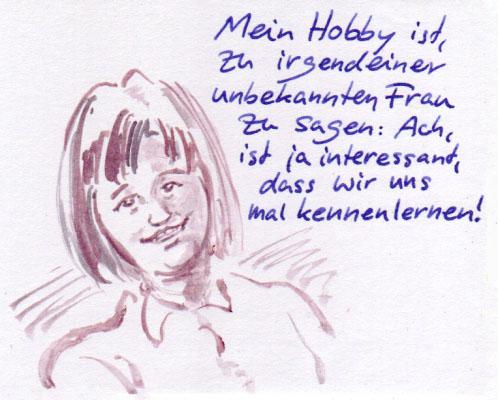 Mein Hobby ist,
zu irgendeiner
unbekannten Frau
zu sagen: Ach,
ist ja interessant,
dass wir uns
mal kennenlernen!